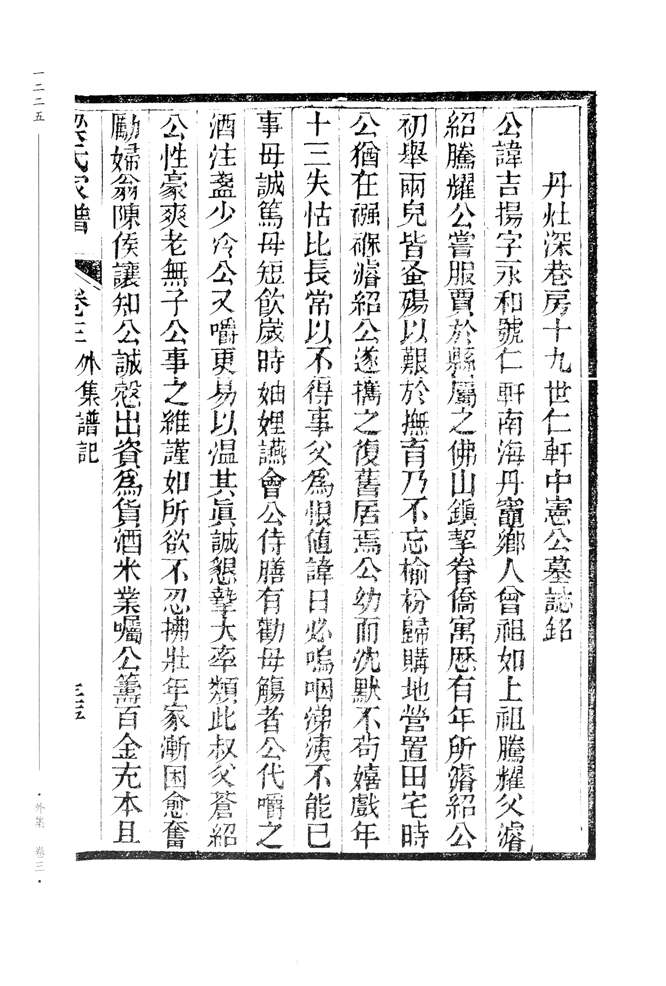 丹灶深巷房十九世仁軒中憲公墓誌銘
公諱吉揚字永和號仁軒南海丹竈鄉人曾祖如上祖騰耀父濬
紹騰耀公嘗服賈於縣屬之佛山鎮挈眷僑寓歷有年所濬紹公
初舉兩兒皆蚤殤以艱於撫育乃不忘榆枌歸購地營置田宅時
公猶在襁褓濬紹公遂攜之復舊居焉公幼而沈默不苟嬉戲年
十三失怙比長常以不得事父為恨值諱日必嗚咽涕洟不能已
事母誠篤母短飲歲時妯娌讌會公侍膳有勸母觴者公代嚼之
酒注盞少冷公又嚼更易以温其眞誠懇摯大率類此叔父蒼紹
公性豪爽老無子公事之維謹如所欲不忍拂壯年家漸困愈奮
勵婦翁陳俟讓知公誠慤出資為貨酒米業囑公籌百金充本且
梁氏家譜 卷三 外集譜記 三五
一二二五
·外集 卷三·